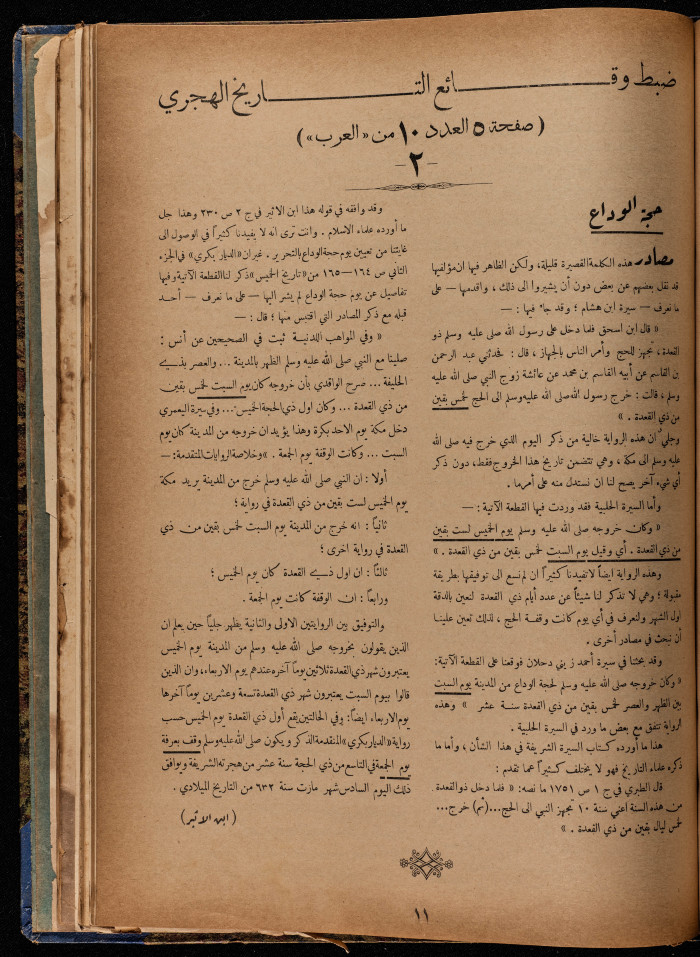 ضبط وقـائع التـاريخ الهجري
(صفحة ٥ العدد ١٠ من «العرب»)
-٢-
حجة الوداع
مصادر هذه الكلمة القصيرة قليلة، ولكن الظاهر فيها ان مؤلفيها
قد نقل بعضهم عن بعض دون أن يشيروا الى ذلك ، واقدمها — على
ما نعرف — سيرة ابن هشام ؛ وقد جاء فيها : —
« قال ابن اسحق فلما دخل على رسول الله صلى عليه وسلم ذو
القعدة ، تجهز للحج وأمر الناس بالجهاز ، قال : فحدثني عبد الرحمن
بن القاسم عن أبيه القاسم بن محمد عن عائشة زوج النبي صلى الله عليه
وسلم ، قالت : خرج رسول الله صلى الله عليه وسلم الى الحج لخمس بقين
من ذي القعدة . »
وجليّ ان هذه الرواية خالية من ذكر اليوم الذي خرج فيه صلى الله
عليه وسلم الى مكة ، وهي تتضمن تاريخ هذا الخروج فقط ، دون ذكر
أي شيء آخر يصح لنا ان نستدل منه على أمرما .
وأما السيرة الحلبية فقد وردت فيها القطعة الآتية : —
« وكان خروجه صلى الله عليه وسلم يوم الخميس لست بقين
من ذي القعدة . أي وقيل يوم السبت لخمس بقين من ذي القعدة . »
وهذه الرواية ايضاً لا تفيدنا كثيراً ان لم نسع الى توفيقها بطريقة
مقبولة ؛ وهي لا تذكر لنا شيئاً عن عدد أيام ذي القعدة لنعين بالدقة
اول الشهر ولنعرف في أي يوم كانت وقفة الحج ، لذلك تعين علينا
أن نبحث في مصادر أخرى .
وقد بحثنا في سيرة أحمد زيني دحلان فوقعنا على القطعة الآتية:
« وكان خروجه صلى الله عليه وسلم لحجة الوداع من المدينة يوم السبت
بين الظهر والعصر لخمس بقين من ذي القعدة سنة عشر » وهذه
الرواية تتفق مع بعض ما ورد في السيرة الحلبية .
هذا ما أورده كتاب السيرة الشريفة في هذا الشأن ، وأما ما
ذكره علماء التاريخ فهو لا يختلف كثيراً عما تقدم :
قال الطبري في ج ١ ص ١٧٥١ ما نصه : « فلما دخل ذو القعدة
من هذه السنة اعني سنة ١٠ تجهز النبي الى الحج ... (ثم) خرج ...
لخمس ليال بقين من ذي القعدة . »
وقد وافقه في قوله هذا ابن الاثير في ج ٢ ص ٢٣٠ وهذا جل
ما أورده علماء الاسلام . وانت ترى انه لا يفيدنا كثيراً في الوصول الى
غايتنا من تعيين يوم حجة الوداع بالتحرير . غير ان «الديار بكري» في الجزء
الثاني ص ١٦٤—١٦٥ من «تاريخ الخميس» ذكر لنا القطعة الآتية وفيها
تفاصيل عن يوم حجة الوداع لم يشر اليها — على ما نعرف — أحد
قبله مع ذكر المصادر التي اقتبس منها ؛ قال : —
« وفي المواهب اللدنية ثبت في الصحيحين عن أنس :
صلينا مع النبي صلى الله عليه وسلم الظهر بالمدينة ... والعصر بذي
الحليفة ... صرح الواقدي بأن خروجه كان يوم السبت لخمس بقين
من ذي القعدة ... وكان اول ذي الحجة الخميس ... وفي سيرة اليعمري
دخل مكة يوم الاحد بكرة وهذا يؤيد ان خروجه من المدينة كان يوم
السبت ... وكانت الوقفة يوم الجمعة . » وخلاصة الروايات المتقدمة : —
أولا : ان النبي صلى الله عليه وسلم خرج من المدينة يريد مكة
يوم الخميس لست بقين من ذي القعدة في رواية ؛
ثانياً : انه خرج من المدينة يوم السبت لخمس بقين من ذي
القعدة في رواية اخرى ؛
ثالثاً : ان اول ذي القعدة كان يوم الخميس ؛
ورابعاً : ان الوقفة كانت يوم الجمعة .
والتوفيق بين الروايتين الاولى والثانية يظهر جلياً حين يعلم ان
الذين يقولون بخروجه صلى الله عليه وسلم من المدينة يوم الخميس
يعتبرون شهر ذي القعدة ثلاثين يوماً آخره عندهم يوم الاربعاء ، وان الذين
قالوا بيوم السبت يعتبرون شهر ذي القعدة تسعة وعشرين يوماً آخرها
يوم الاربعاء ايضاً : وفي الحالتين يقع أول ذي القعدة يوم الخميس حسب
رواية «الديار بكري» المتقدمة الذكر ويكون صلى الله عليه وسلم وقف بعرفة
يوم الجمعة في التاسع من ذي الحجة سنة عشر من هجرته الشريفة ويوافق
ذلك اليوم السادس شهر مارت سنة ٦٣٢ من التاريخ الميلادي .
(ابن الاثير)
١١